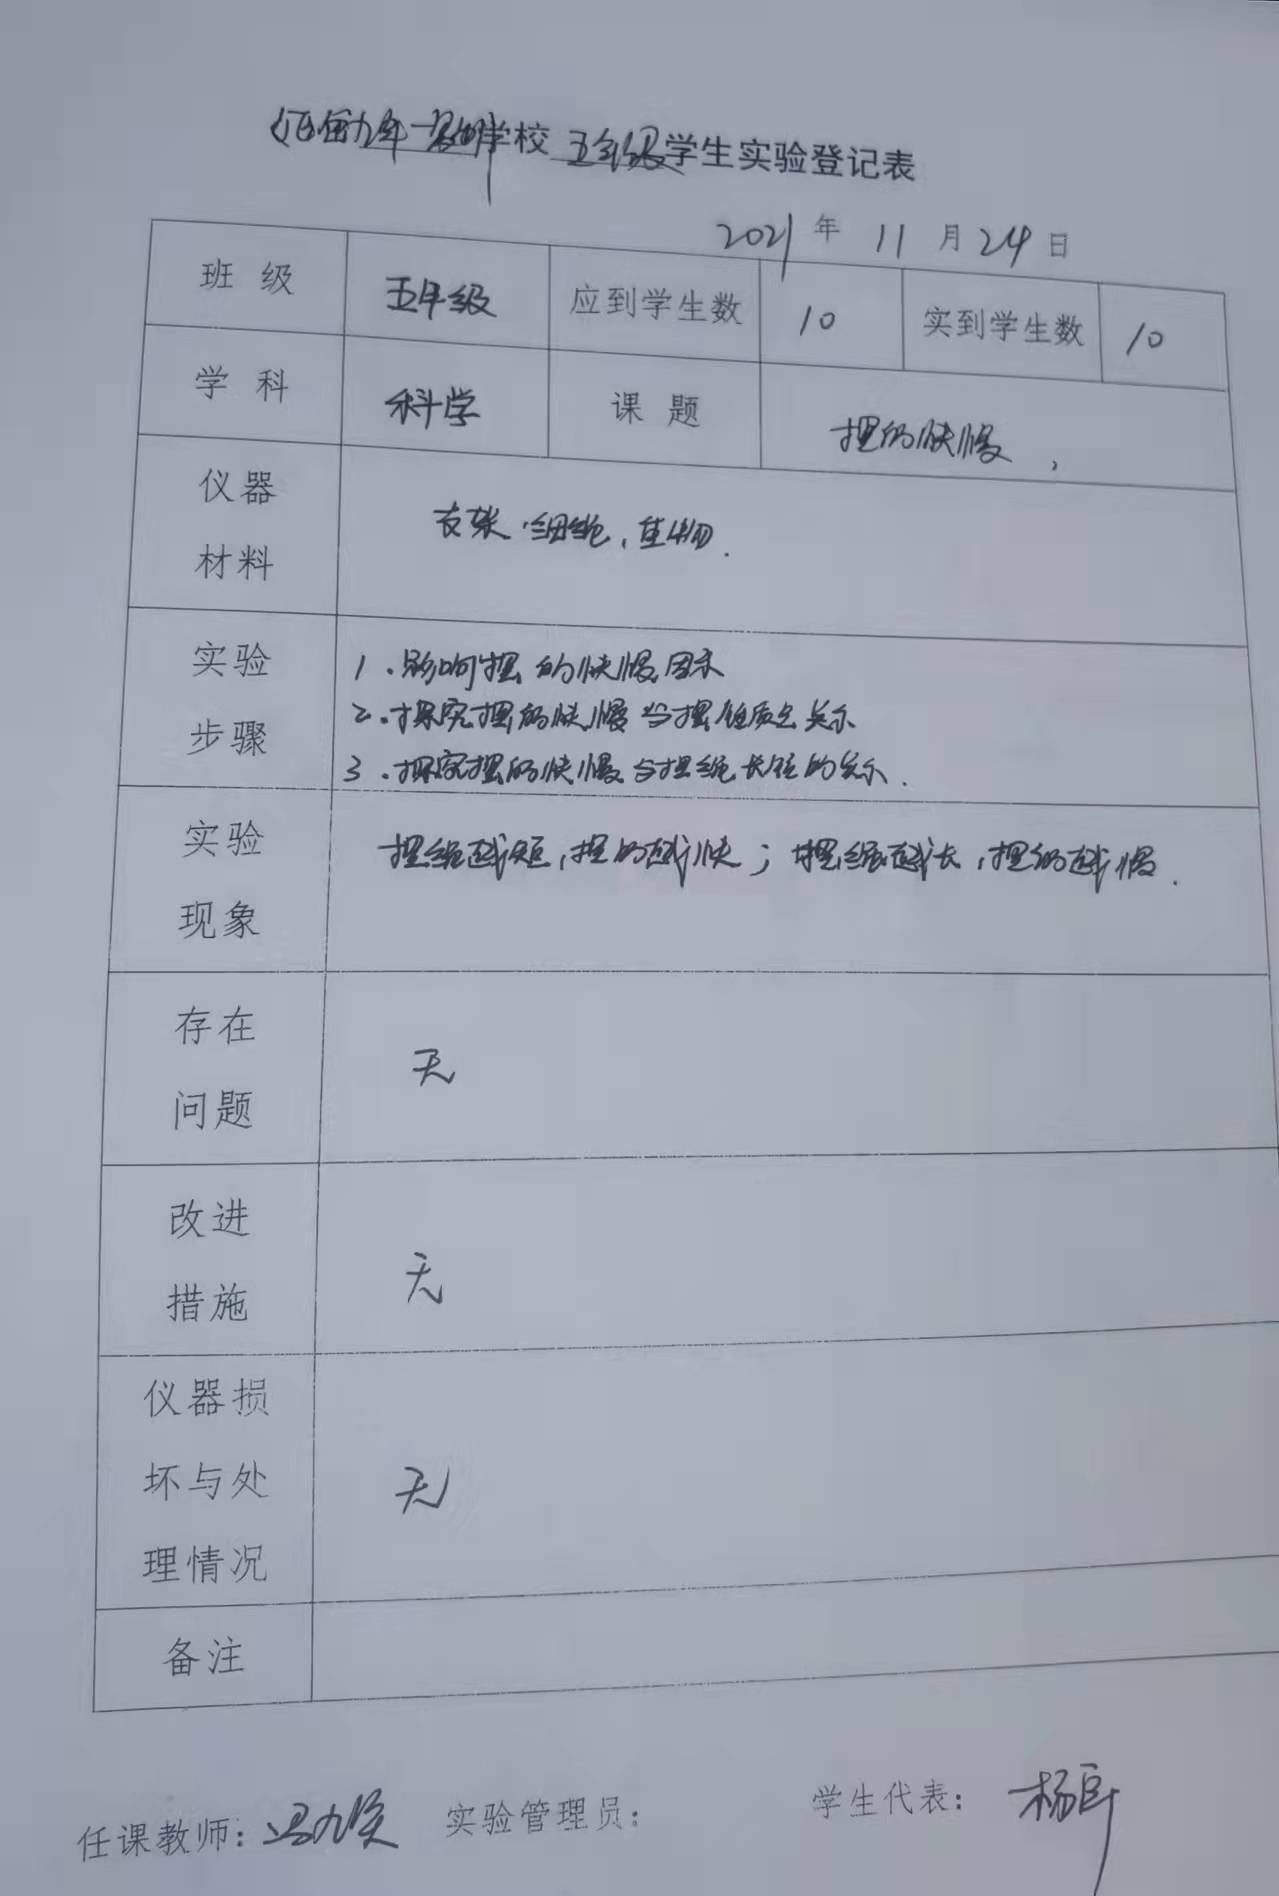 九年一贯制学校 五年级学生实验登记表
2021年11月24日
班级 五年级 应到学生数 10 实到学生数 10
学科 科学 课题 摆的快慢
仪器
材料
支架、细绳、重物.
实验
步骤
1.影响摆的快慢因素
2.探究摆的快慢与摆锤质量关系
3.探究摆的快慢与摆绳长短的关系.
实验
现象
摆绳越短,摆的越快;摆绳越长,摆的越慢.
存在
问题
无
改进
措施
无
仪器损
坏与处
理情况
无
备注
任课教师: 实验管理员: 学生代表: 杨